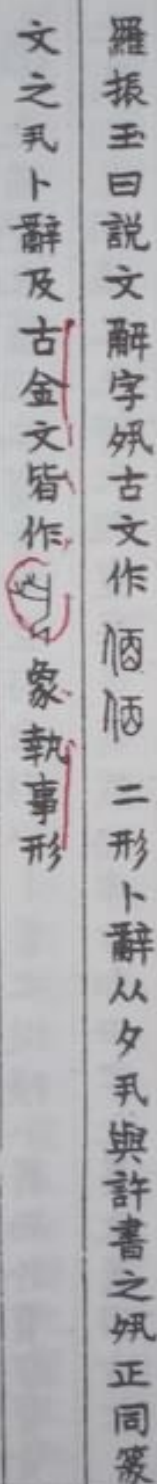 羅振玉曰説文解字夙古文作𠈇𠈇二形卜辭从夕丮與許書之夙正同篆
文之丮卜辭及古金文皆作象執事形